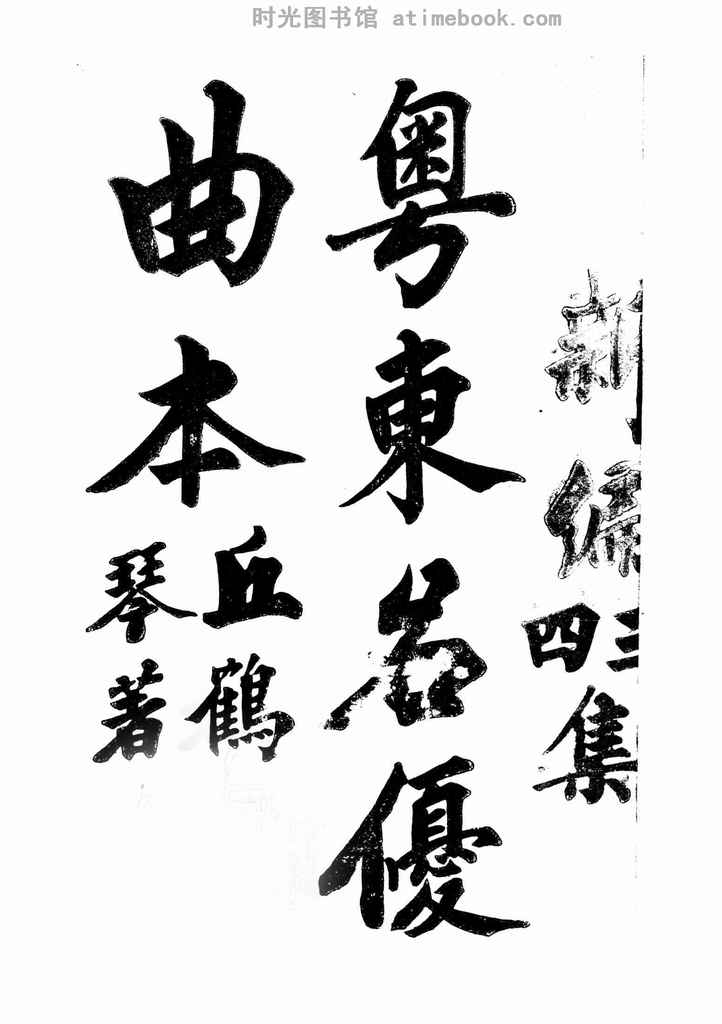 时光图书馆 atimebook.com
新編
三四集
粵東名優
曲本
丘鶴
琴著